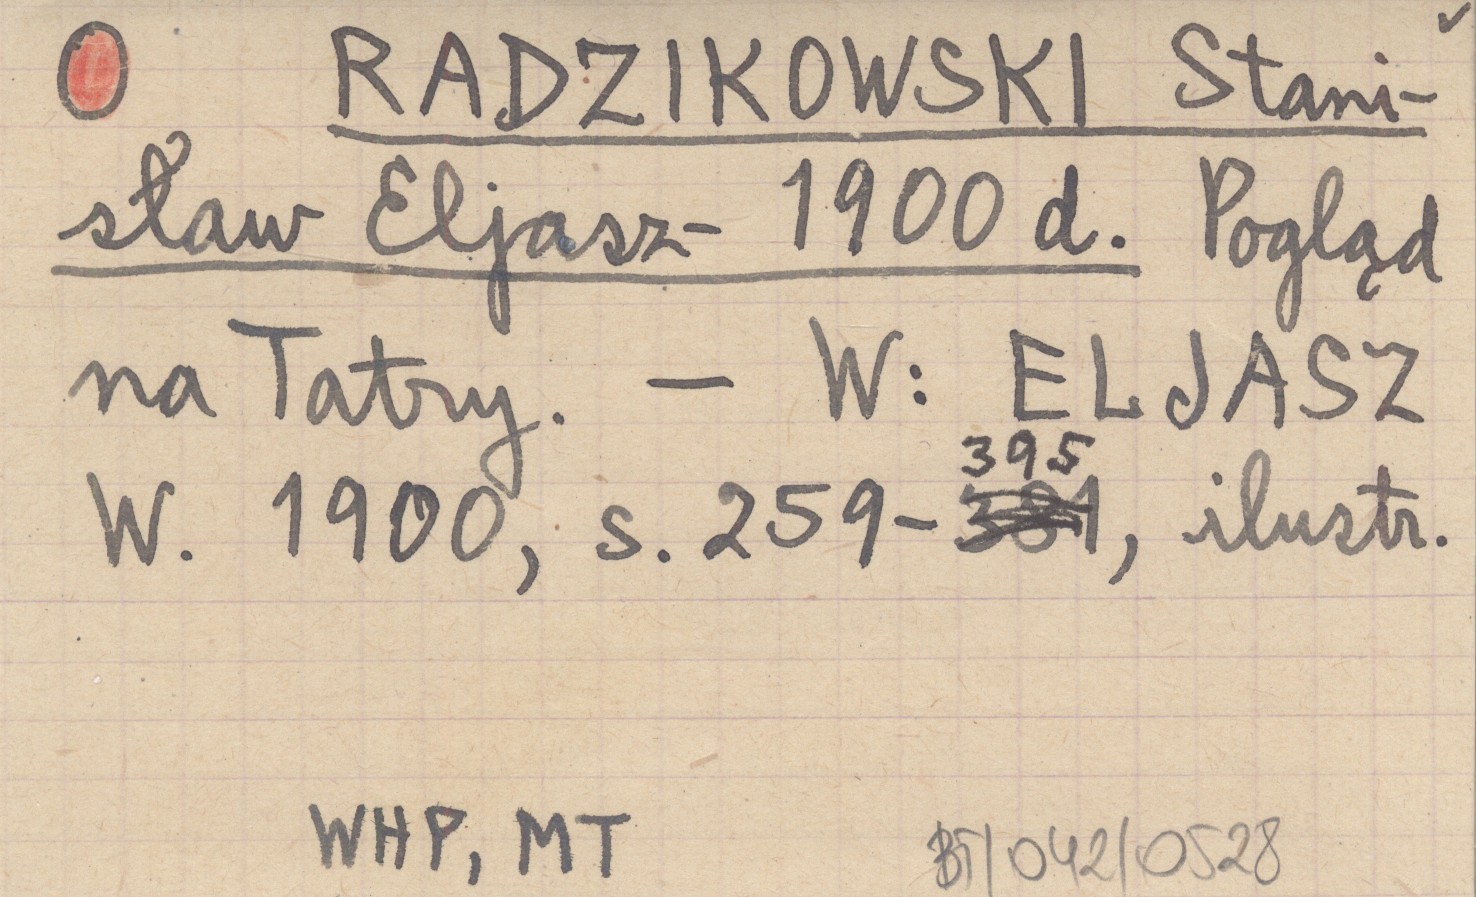 O RADZIKOWSKI Stani-
sław Eljasz- 1900 d. Pogląd
na Tatry. — W: ELJASZ
395
W. 1900, s. 259-381, ilustr.
WHP, MT
BT/042/0528